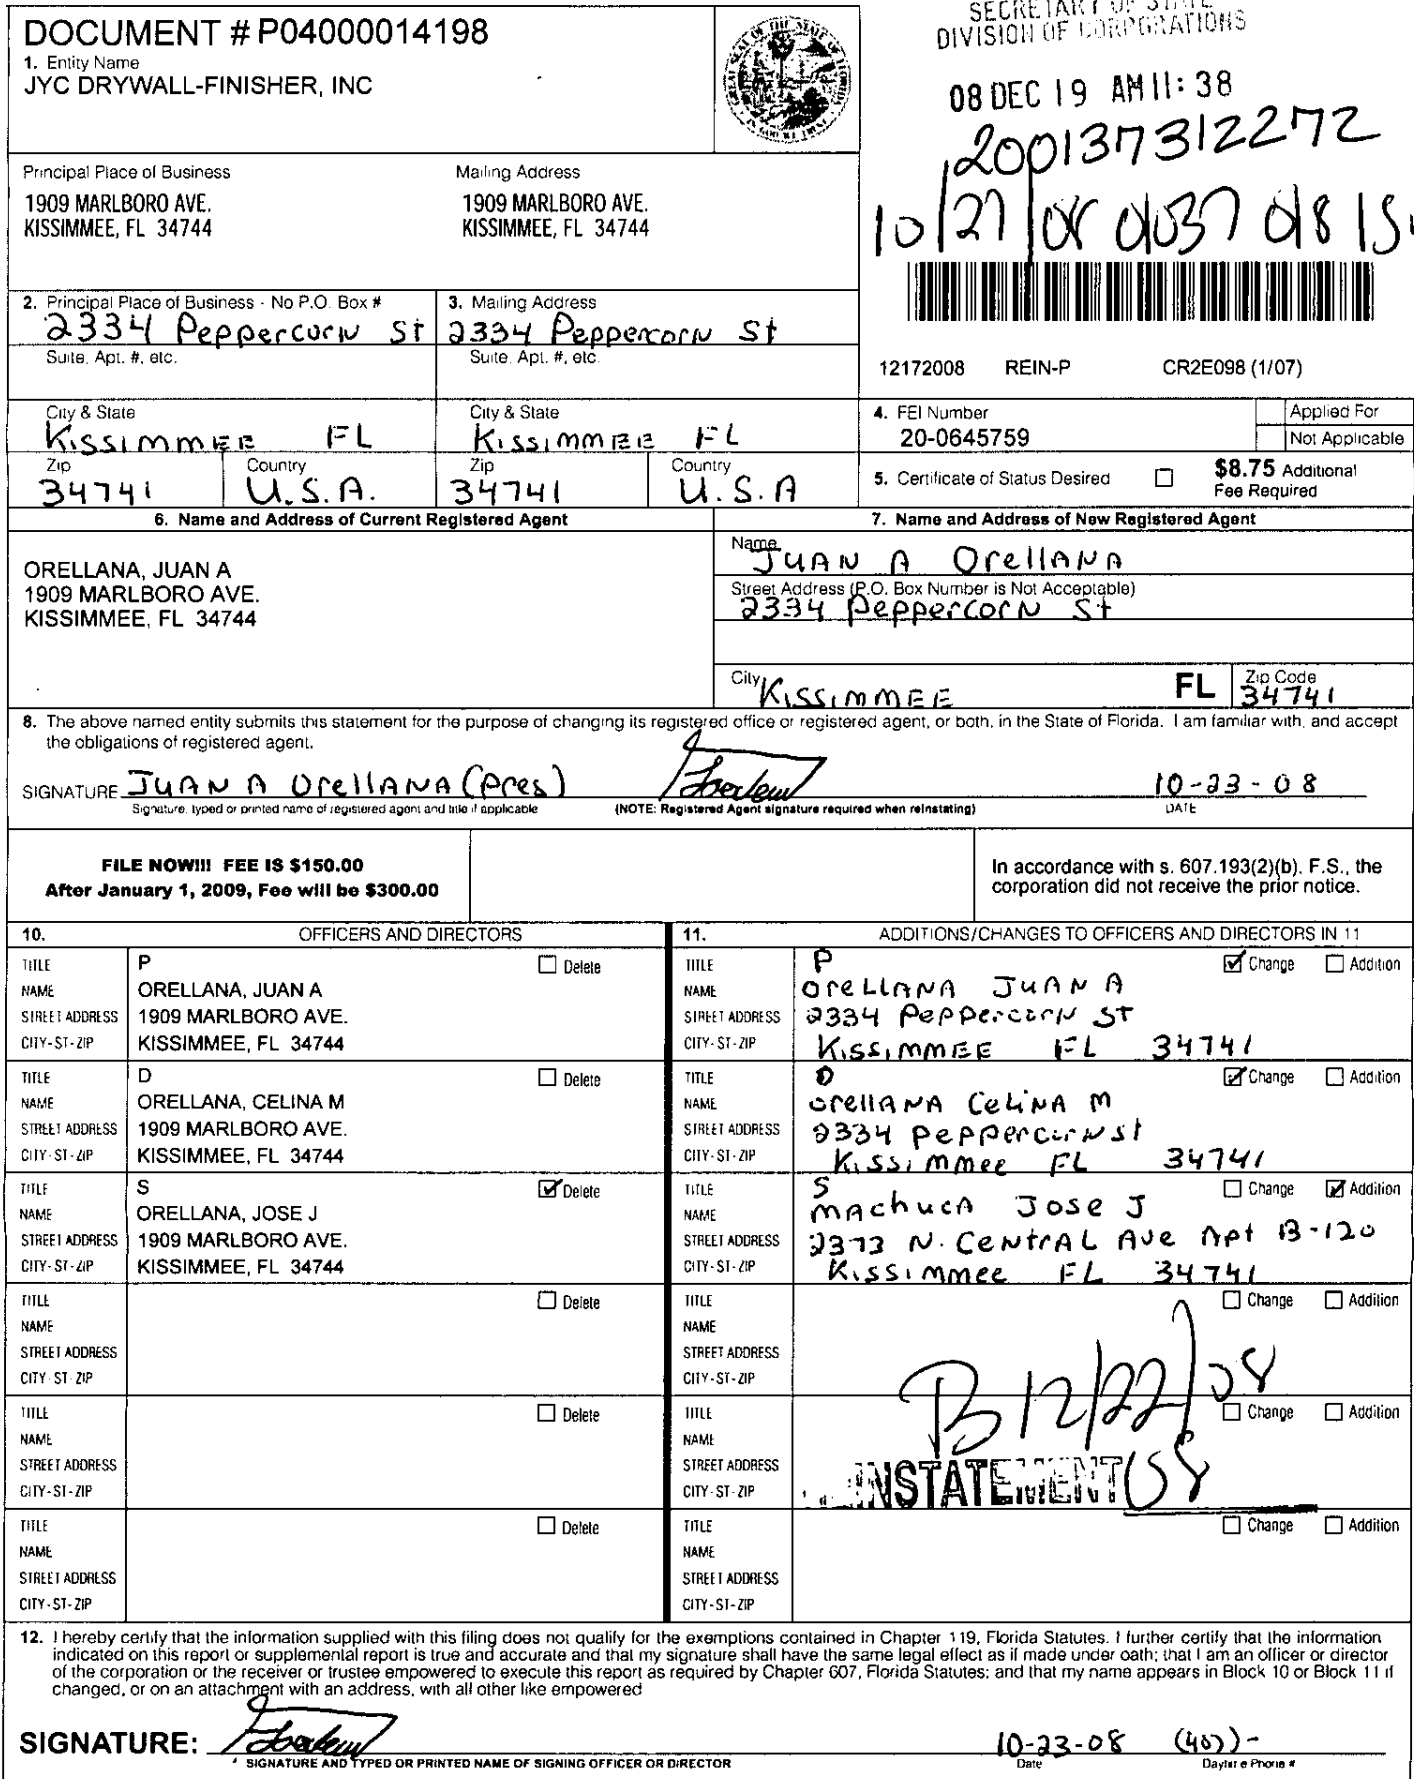 DOCUMENT # P04000014198
1. Entity Name
JYC DRYWALL-FINISHER, INC
SECRETARY OF STATE
DIVISION OF CORPORATIONS
08 DEC 19 AM 11:38
200137312272
Principal Place of Business
1909 MARLBORO AVE.
KISSIMMEE, FL 34744
Mailing Address
1909 MARLBORO AVE.
KISSIMMEE, FL 34744
2. Principal Place of Business - No P.O. Box #
2334 Peppercorn St
Suite, Apt. #, etc.
3. Mailing Address
2334 Peppercorn St
Suite, Apt. #, etc.
12172008 REIN-P CR2E098 (1/07)
City & State
Kissimmee FL
City & State
Kissimmee FL
Zip
34741
Country
U.S.A.
Zip
34741
Country
U.S.A
4. FEI Number
20-0645759
Applied For
Not Applicable
5. Certificate of Status Desired
$8.75 Additional
Fee Required
6. Name and Address of Current Registered Agent
ORELLANA, JUAN A
1909 MARLBORO AVE.
KISSIMMEE, FL 34744
7. Name and Address of New Registered Agent
Name
JUAN A Orellana
Street Address (P.O. Box Number is Not Acceptable)
2334 Peppercorn St
City
Kissimmee
FL
Zip Code
34741
8. The above named entity submits this statement for the purpose of changing its registered office or registered agent, or both, in the State of Florida. I am familiar with, and accept
the obligations of registered agent.
SIGNATURE JUAN A Orellana (Pres) 10-23-08
Signature, typed or printed name of registered agent and title if applicable
(NOTE: Registered Agent signature required when reinstating)
DATE
FILE NOW!!! FEE IS $150.00
After January 1, 2009, Fee will be $300.00
In accordance with s. 607.193(2)(b), F.S., the
corporation did not receive the prior notice.
10. OFFICERS AND DIRECTORS
11. ADDITIONS/CHANGES TO OFFICERS AND DIRECTORS IN 11
TITLE P Delete
NAME ORELLANA, JUAN A
STREET ADDRESS 1909 MARLBORO AVE.
CITY-ST-ZIP KISSIMMEE, FL 34744
TITLE P Change Addition
NAME Orellana JUAN A
STREET ADDRESS 2334 Peppercorn ST
CITY-ST-ZIP Kissimmee FL 34741
TITLE D Delete
NAME ORELLANA, CELINA M
STREET ADDRESS 1909 MARLBORO AVE.
CITY-ST-ZIP KISSIMMEE, FL 34744
TITLE D Change Addition
NAME Orellana Celina M
STREET ADDRESS 2334 Peppercorn st
CITY-ST-ZIP Kissimmee FL 34741
TITLE S Delete
NAME ORELLANA, JOSE J
STREET ADDRESS 1909 MARLBORO AVE.
CITY-ST-ZIP KISSIMMEE, FL 34744
TITLE S Change Addition
NAME Machuca Jose J
STREET ADDRESS 2373 N. Central Ave Apt B-120
CITY-ST-ZIP Kissimmee FL 34741
TITLE Delete
NAME
STREET ADDRESS
CITY-ST-ZIP
TITLE Change Addition
NAME
STREET ADDRESS
CITY-ST-ZIP
B 12/22/08
TITLE Delete
NAME
STREET ADDRESS
CITY-ST-ZIP
TITLE Change Addition
NAME
STREET ADDRESS
CITY-ST-ZIP
INSTATEMENT 08
TITLE Delete
NAME
STREET ADDRESS
CITY-ST-ZIP
TITLE Change Addition
NAME
STREET ADDRESS
CITY-ST-ZIP
12. I hereby certify that the information supplied with this filing does not qualify for the exemptions contained in Chapter 119, Florida Statutes. I further certify that the information
indicated on this report or supplemental report is true and accurate and that my signature shall have the same legal effect as if made under oath; that I am an officer or director
of the corporation or the receiver or trustee empowered to execute this report as required by Chapter 607, Florida Statutes; and that my name appears in Block 10 or Block 11 if
changed, or on an attachment with an address, with all other like empowered
SIGNATURE: 10-23-08 (407)-
SIGNATURE AND TYPED OR PRINTED NAME OF SIGNING OFFICER OR DIRECTOR
Date
Daytime Phone #